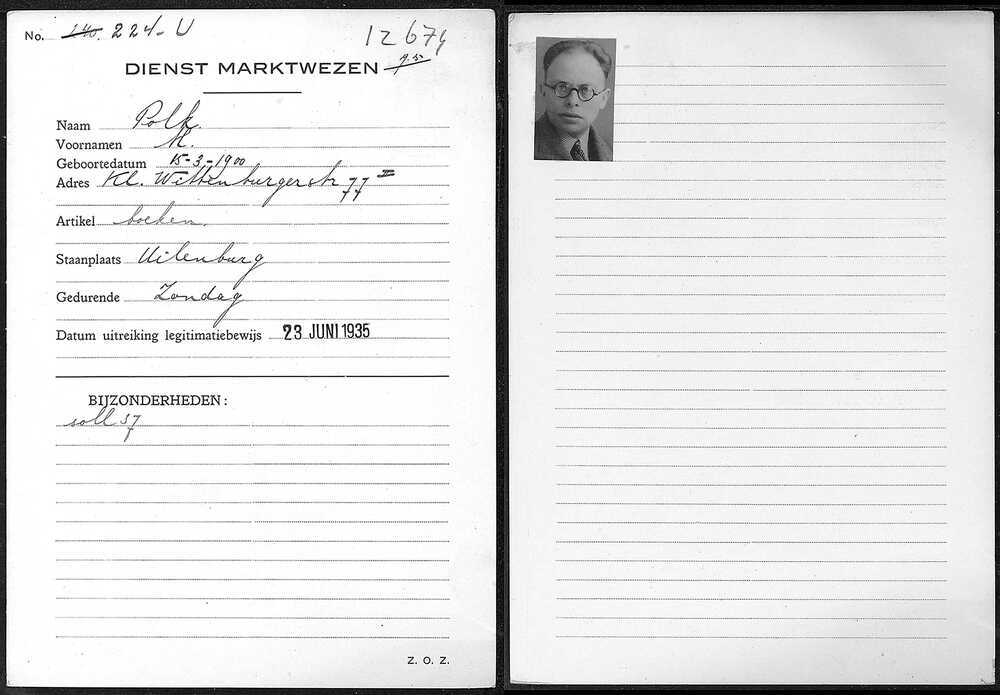 No. 210. 224-U
12674
DIENST MARKTWEZEN
Naam Polk.
Voornamen M.
Geboortedatum 15-3-1900
Adres Kl. Wittenburgerstr 77 II
Artikel boeken.
Staanplaats Uilenburg
Gedurende Zondag
Datum uitreiking legitimatiebewijs 23 JUNI 1935
BIJZONDERHEDEN:
soll 37
Z. O. Z.